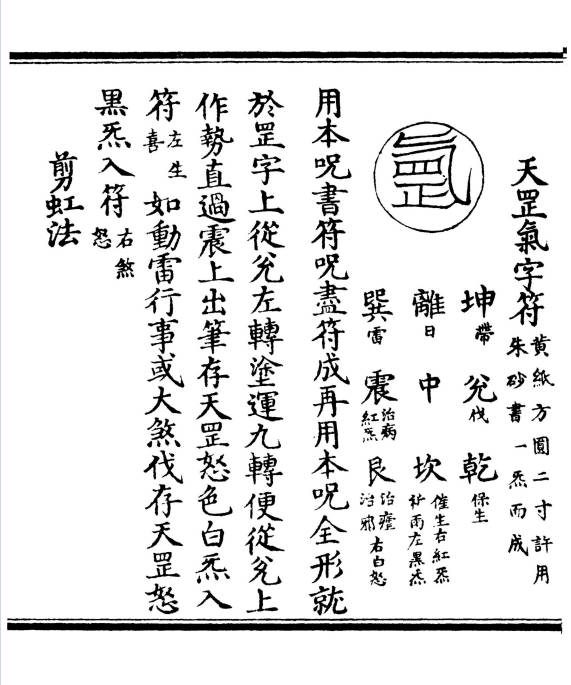 天罡氣字符 黄紙方圓二寸許用朱砂書一炁而成
坤帶 兊伐 乾保生
離日 中 坎催生右紅炁祈雨左黒炁
巽雷 震治病紅炁 艮治瘧右白怒治邪
用本呪書符呪盡符成再用本呪全形就
於罡字上從兊左轉塗運九轉便從兊上
作勢直過震上出筆存天罡怒色白炁入
符左生喜如動雷行事或大煞伐存天罡怒
黒炁入符右煞怒
剪虹法